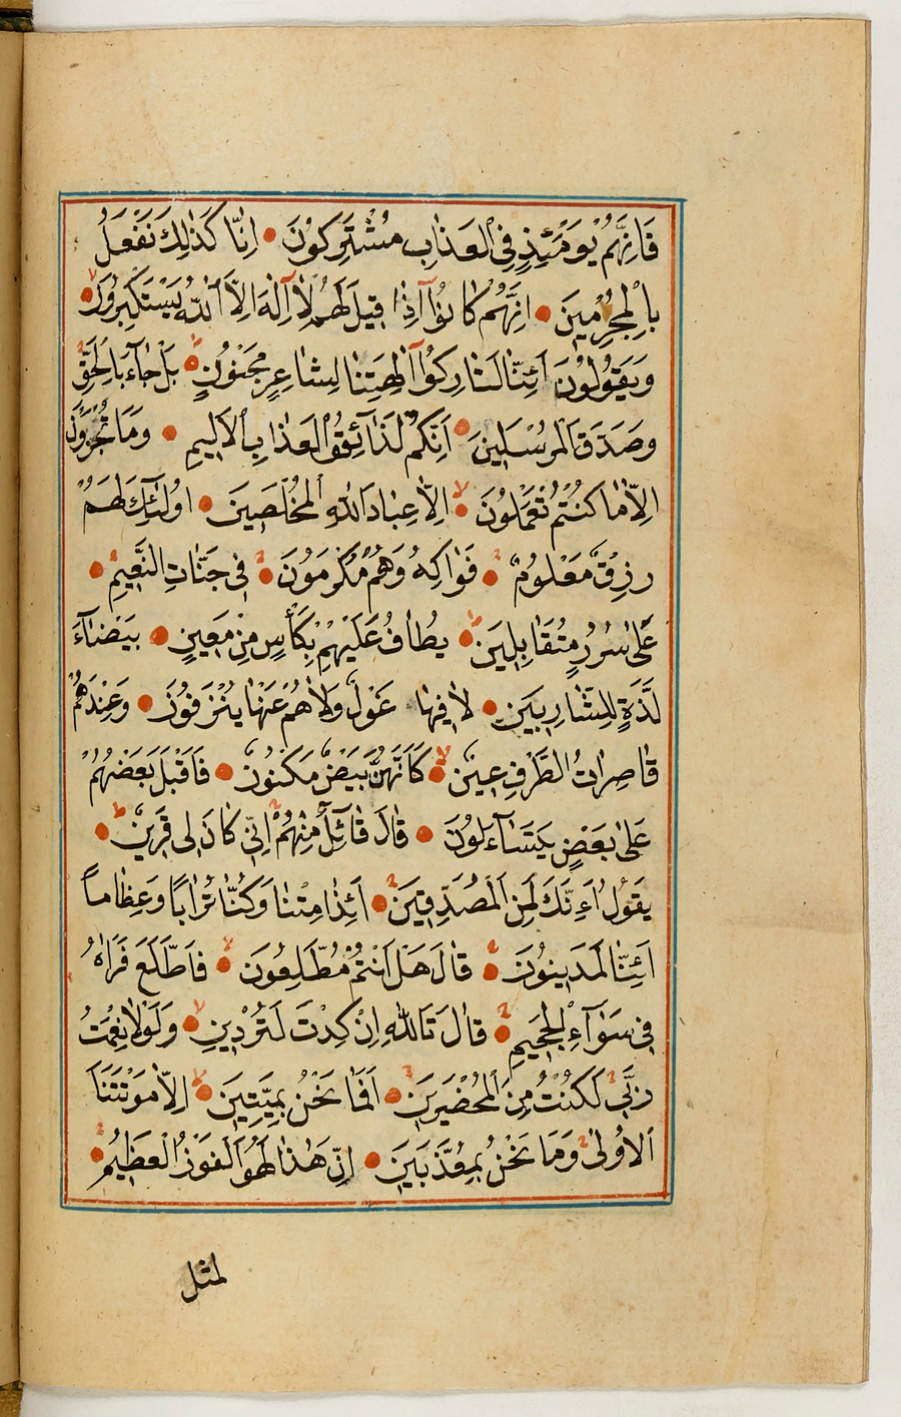 فَاِنَّهُمْ يَوْمَئِذٍ فِى الْعَذَابِ مُشْتَرِكُونَ • اِنَّا كَذٰلِكَ نَفْعَلُ
بِالْمُجْرِمِينَ • اِنَّهُمْ كَانُوآ اِذَا قِيلَ لَهُمْ لَآ اِلٰهَ اِلَّا اللّٰهُ يَسْتَكْبِرُونَ •
وَيَقُولُونَ اَئِنَّا لَتَارِكُوآ اٰلِهَتِنَا لِشَاعِرٍ مَجْنُونٍ • بَلْ جَآءَ بِالْحَقِّ
وَصَدَّقَ الْمُرْسَلِينَ • اِنَّكُمْ لَذَآئِقُوا الْعَذَابِ الْاَلِيمِ • وَمَا تُجْزَوْنَ
اِلَّا مَا كُنْتُمْ تَعْمَلُونَ • اِلَّا عِبَادَ اللّٰهِ الْمُخْلَصِينَ • اُولٰٓئِكَ لَهُمْ
رِزْقٌ مَعْلُومٌ • فَوَاكِهُ وَهُمْ مُكْرَمُونَ • فِى جَنَّاتِ النَّعِيمِ •
عَلٰى سُرُرٍ مُتَقَابِلِينَ • يُطَافُ عَلَيْهِمْ بِكَأْسٍ مِنْ مَعِينٍ • بَيْضَآءَ
لَذَّةٍ لِلشَّارِبِينَ • لَا فِيهَا غَوْلٌ وَلَا هُمْ عَنْهَا يُنْزَفُونَ • وَعِنْدَهُمْ
قَاصِرَاتُ الطَّرْفِ عِينٌ • كَاَنَّهُنَّ بَيْضٌ مَكْنُونٌ • فَاَقْبَلَ بَعْضُهُمْ
عَلٰى بَعْضٍ يَتَسَآءَلُونَ • قَالَ قَآئِلٌ مِنْهُمْ اِنِّى كَانَ لِى قَرِينٌ •
يَقُولُ اَءِنَّكَ لَمِنَ الْمُصَدِّقِينَ • اَئِذَا مِتْنَا وَكُنَّا تُرَابًا وَعِظَامًا
اَئِنَّا لَمَدِينُونَ • قَالَ هَلْ اَنْتُمْ مُطَّلِعُونَ • فَاطَّلَعَ فَرَاٰهُ
فِى سَوَآءِ الْجَحِيمِ • قَالَ تَاللّٰهِ اِنْ كِدْتَ لَتُرْدِينِ • وَلَوْلَا نِعْمَتُ
رَبِّى لَكُنْتُ مِنَ الْمُحْضَرِينَ • اَفَمَا نَحْنُ بِمَيِّتِينَ • اِلَّا مَوْتَتَنَا
الْاُولٰى وَمَا نَحْنُ بِمُعَذَّبِينَ • اِنَّ هٰذَا لَهُوَ الْفَوْزُ الْعَظِيمُ •
لمثل